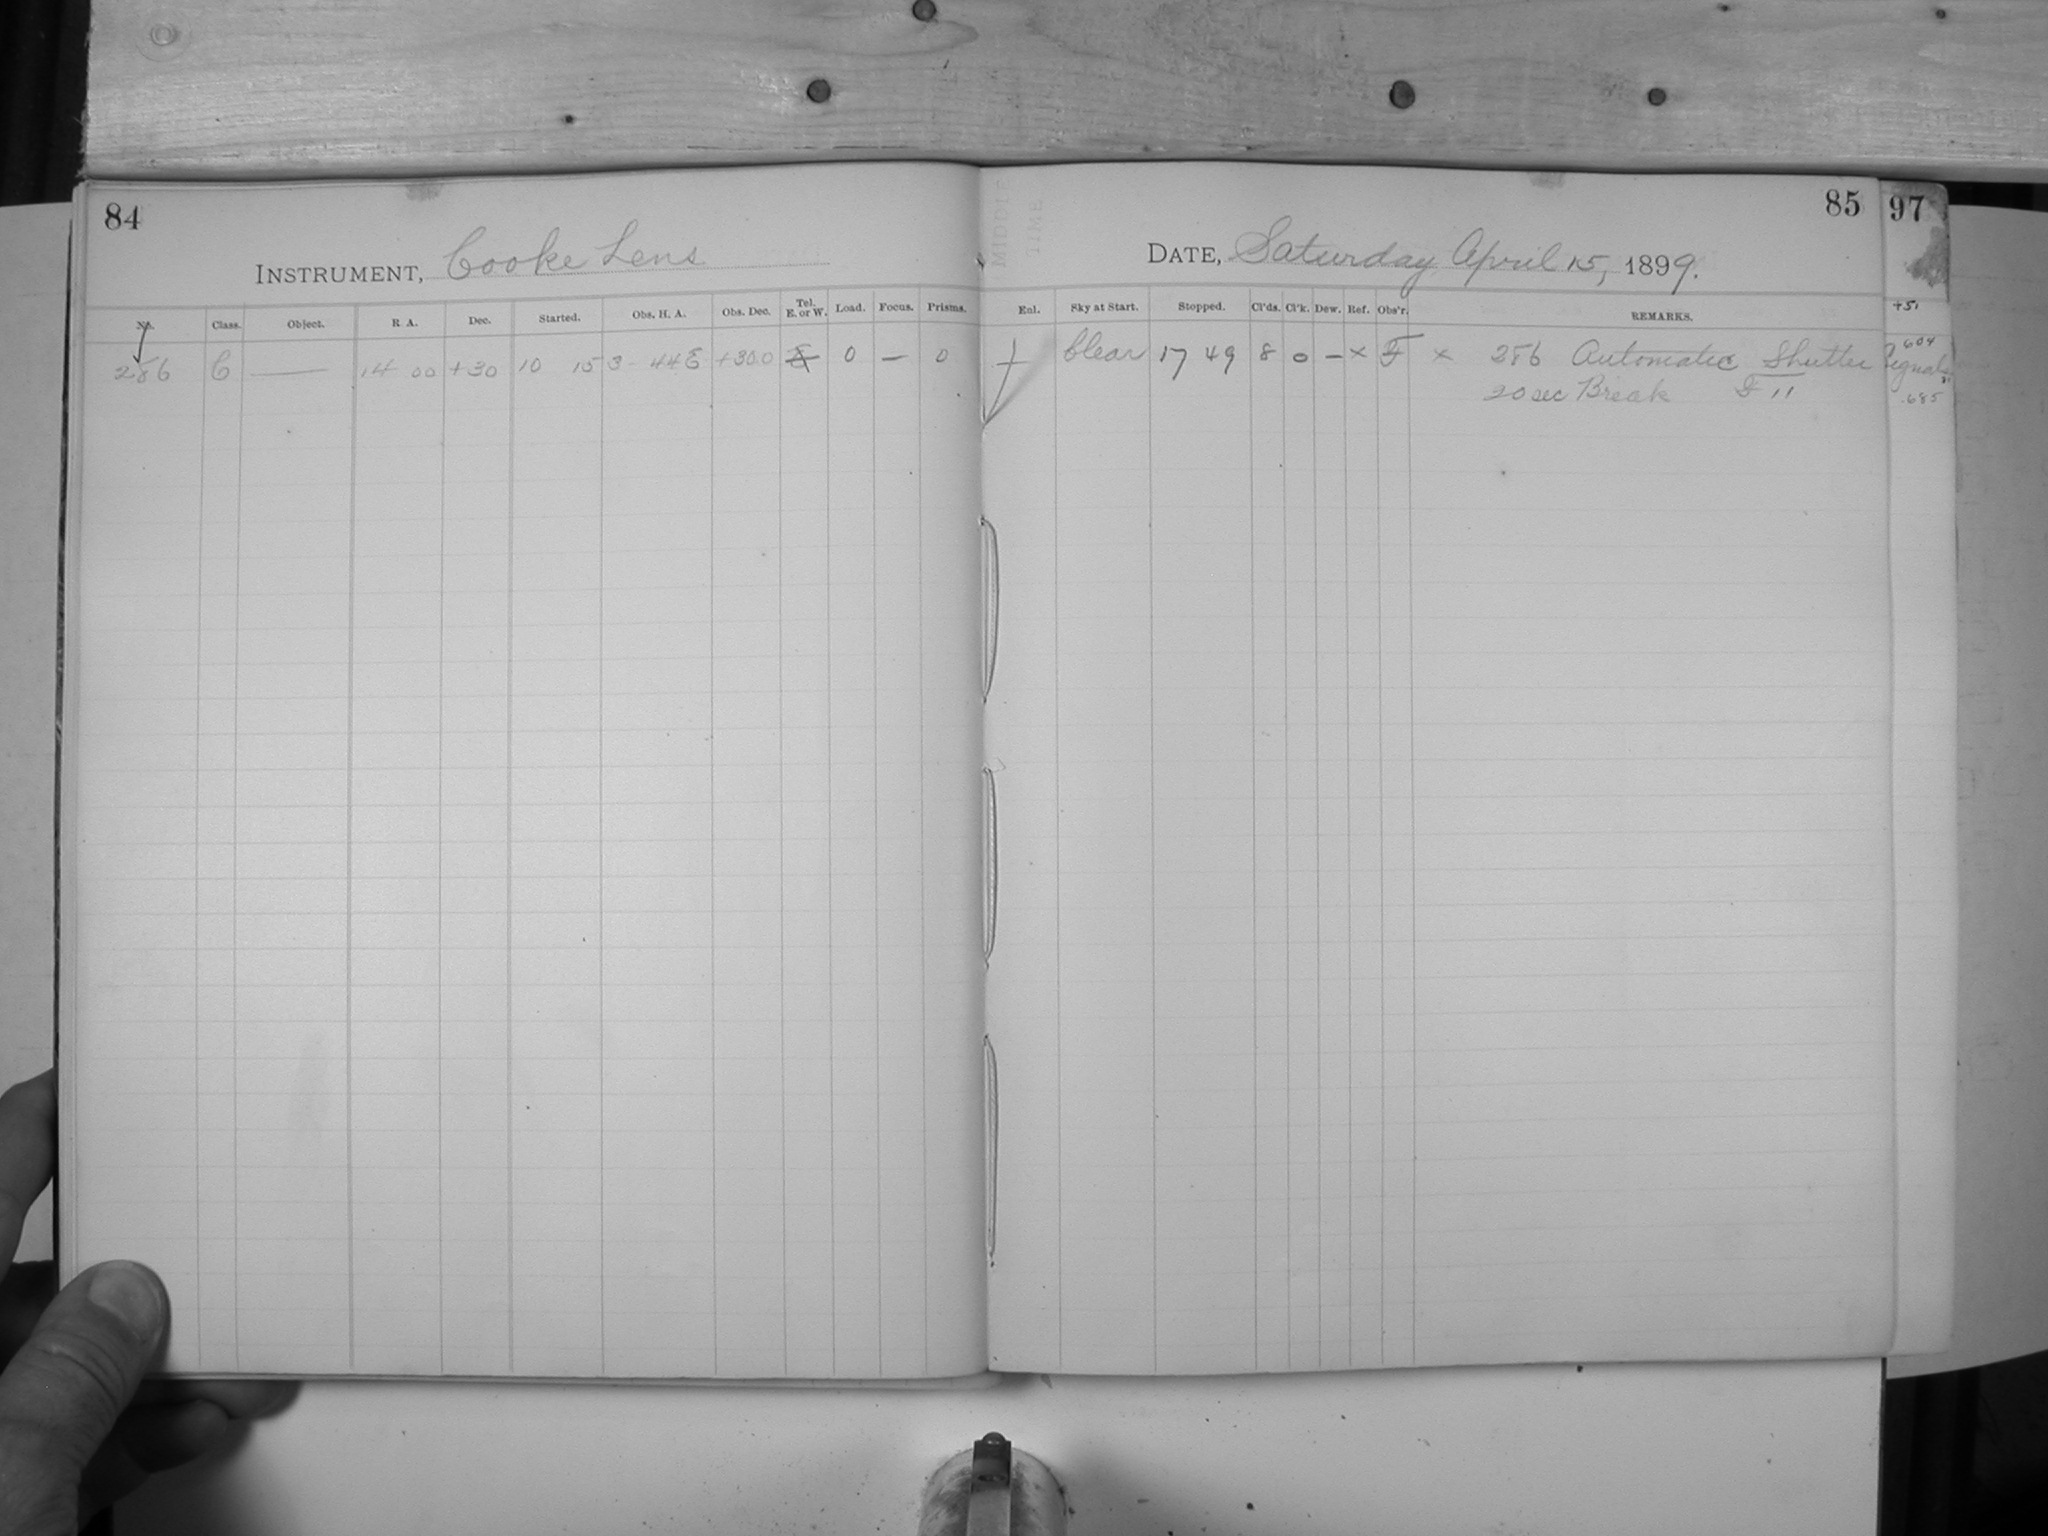 84
INSTRUMENT, Cooke Lens
No. Class. Object. R A. Dec. Started. Obs. H. A. Obs. Dec. Tel. E. or W. Load. Focus. Prisms.
286 C — 14 00 +30 10 15 3 44 E +30.0 0 — 0
MIDDLE
TIME
85
DATE, Saturday April 15, 1899.
Enl. Sky at Start. Stopped. Cl'ds. Cl'k. Dew. Ref. Obs'r. REMARKS.
Clear 17 49 8 0 — × F × 286 Automatic Shutter
20 sec Break F 11
97
+51
604
.685